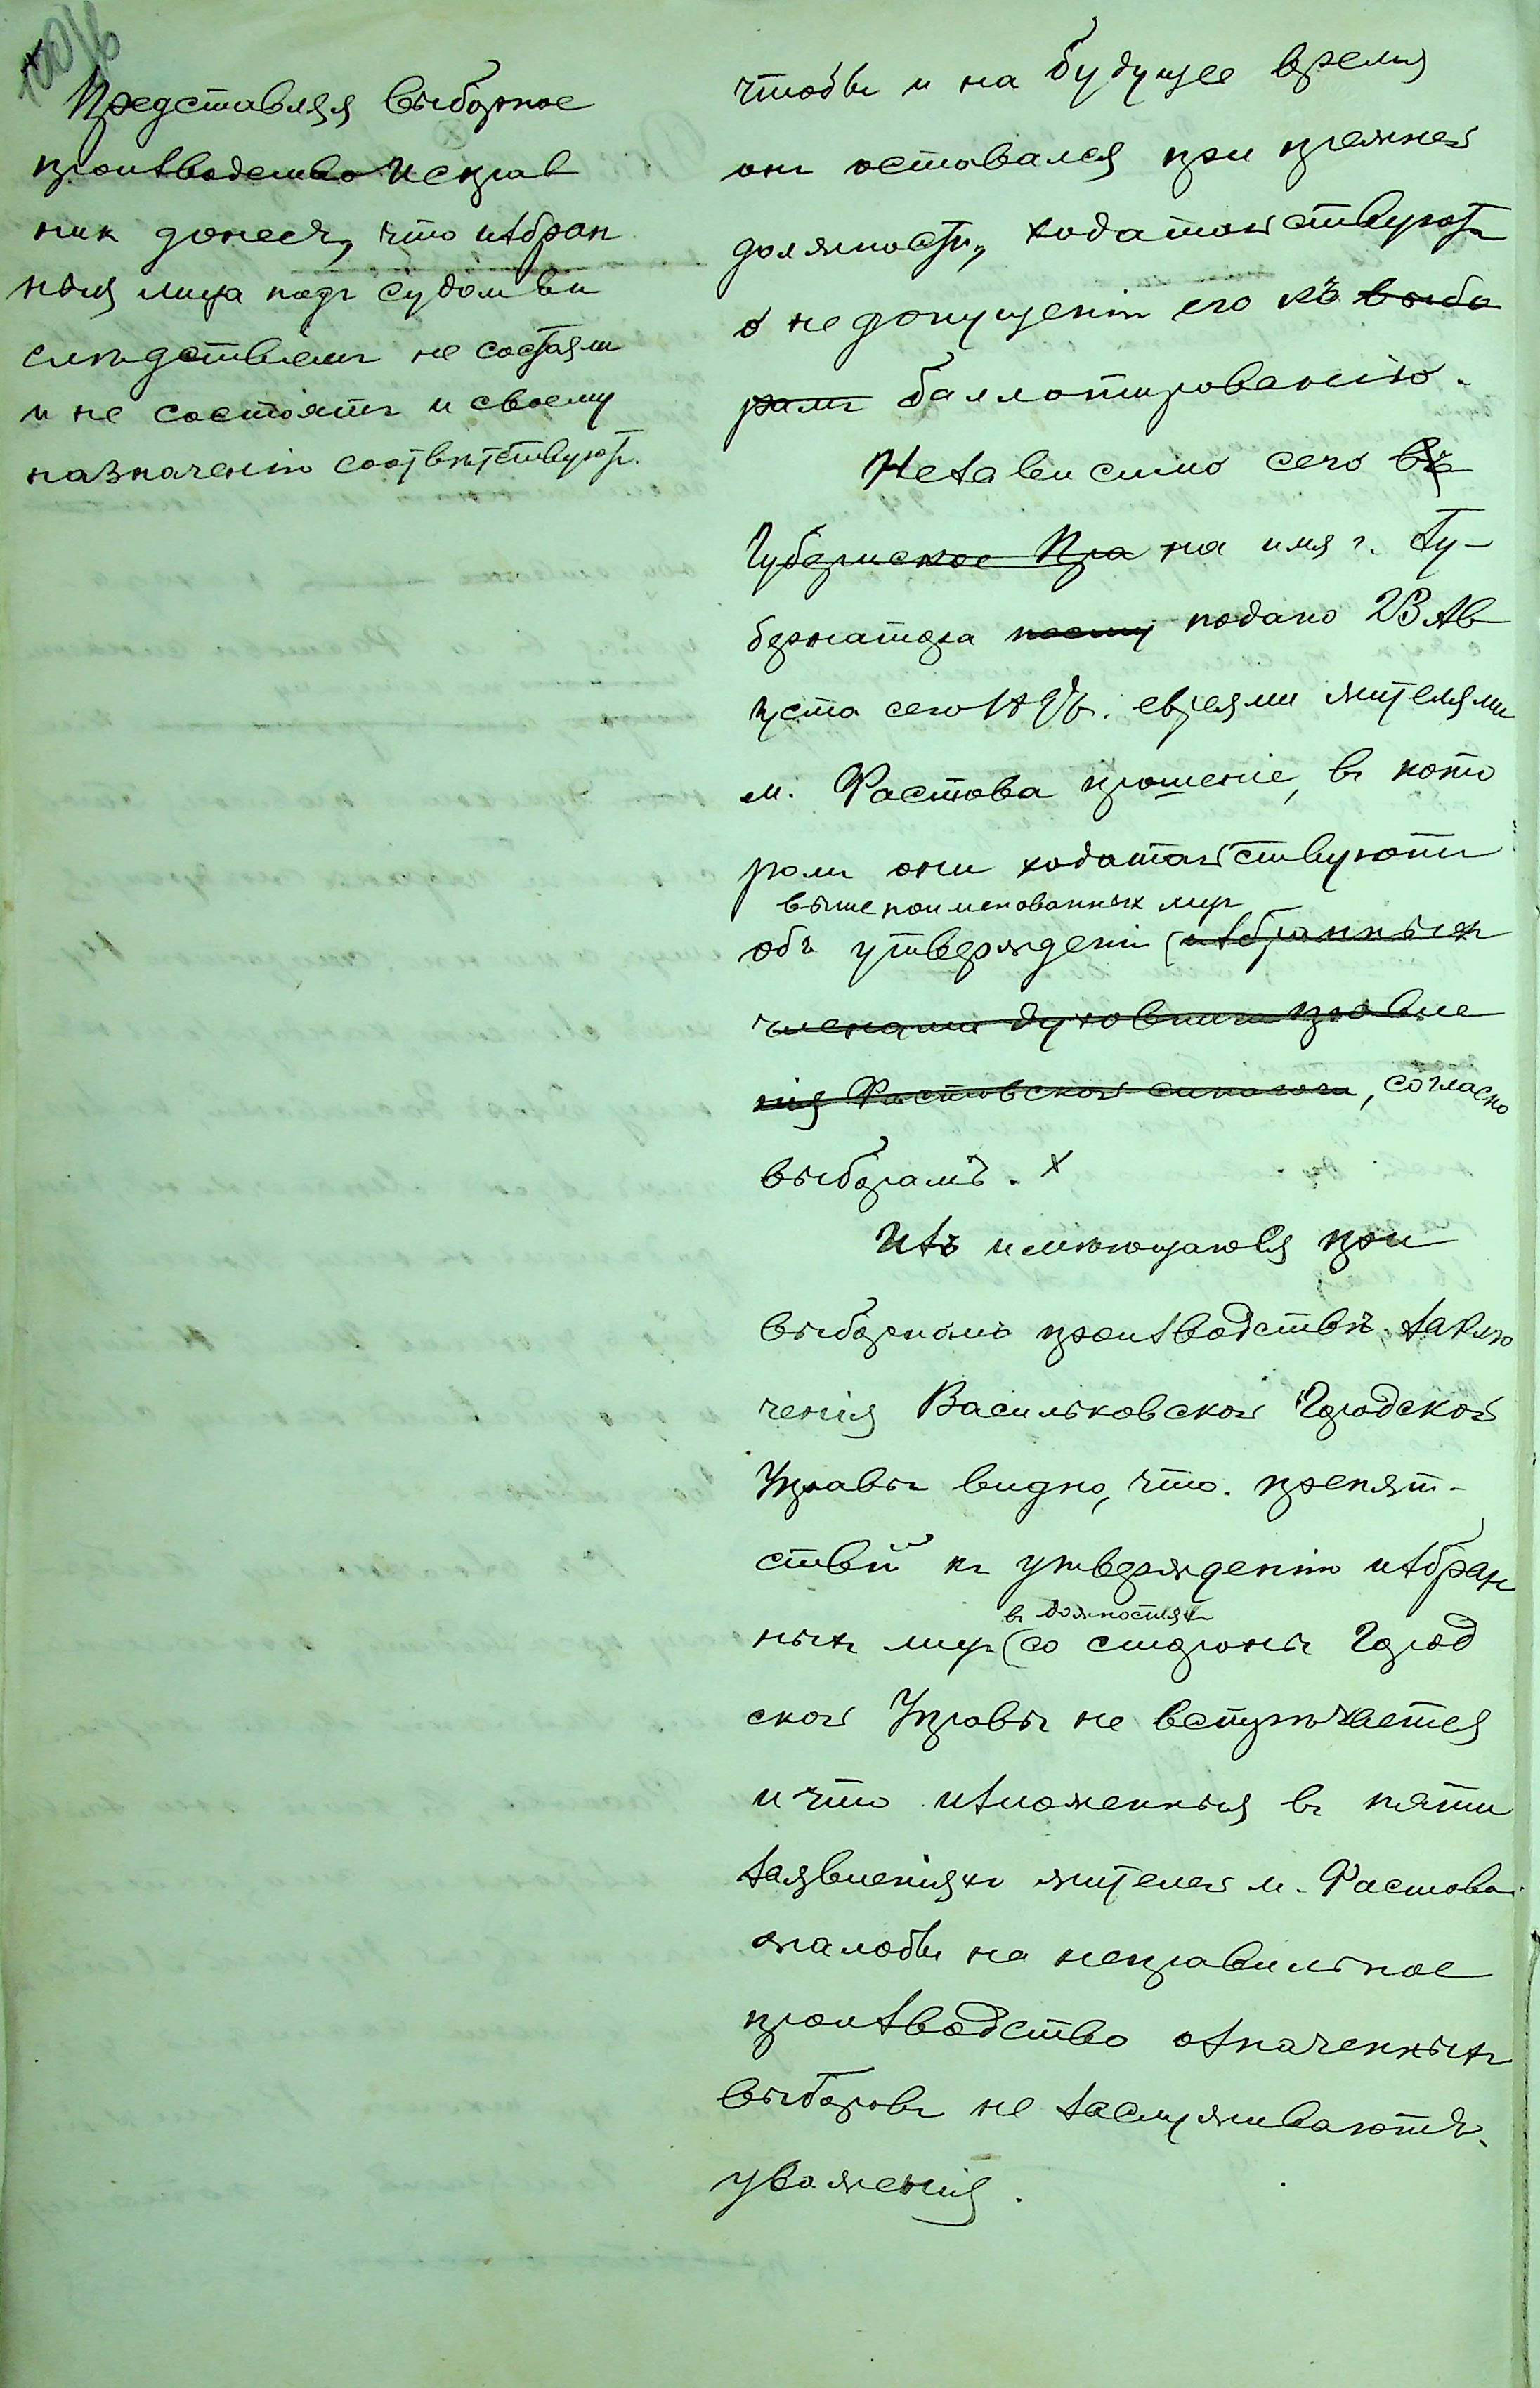 Представляя выборное
производство Исправ
ник донесъ, что избран
ныя лица подъ судомъ и
слѣдствіемъ не состояли
и не состоятъ и своему
назначенію соотвѣтствуютъ.
чтобы и на будущее время
онъ оставался при прежней
должности, ходатайствуютъ
о недопущеніи его къ выбо
рамъ баллотированію.
Независимо сего въ
Губернское Пра на имя г. Гу-
бернатора подано 23 Ав
густа сего 1896. евреями жителями
м. Фастова прошеніе, въ кото
ромъ они ходатайствуютъ
вышепоименованныхъ лицъ
объ утвержденіи избранныхъ
членами духовнаго правле
нія Фастовской синагоги, согласно
выборамъ. х
Изъ имѣющагося при
выборномъ производствѣ заклю
ченія Васильковской Городской
Управы видно, что препят-
ствій къ утвержденію избран
въ должностяхъ
ныхъ лицъ (со стороны Город
ской Управы не встрѣчается
и что изложенныя въ пяти
заявленіяхъ жителей м. Фастова
жалобы на неправильное
производство означенныхъ
выборовъ не заслуживаютъ
уваженія.